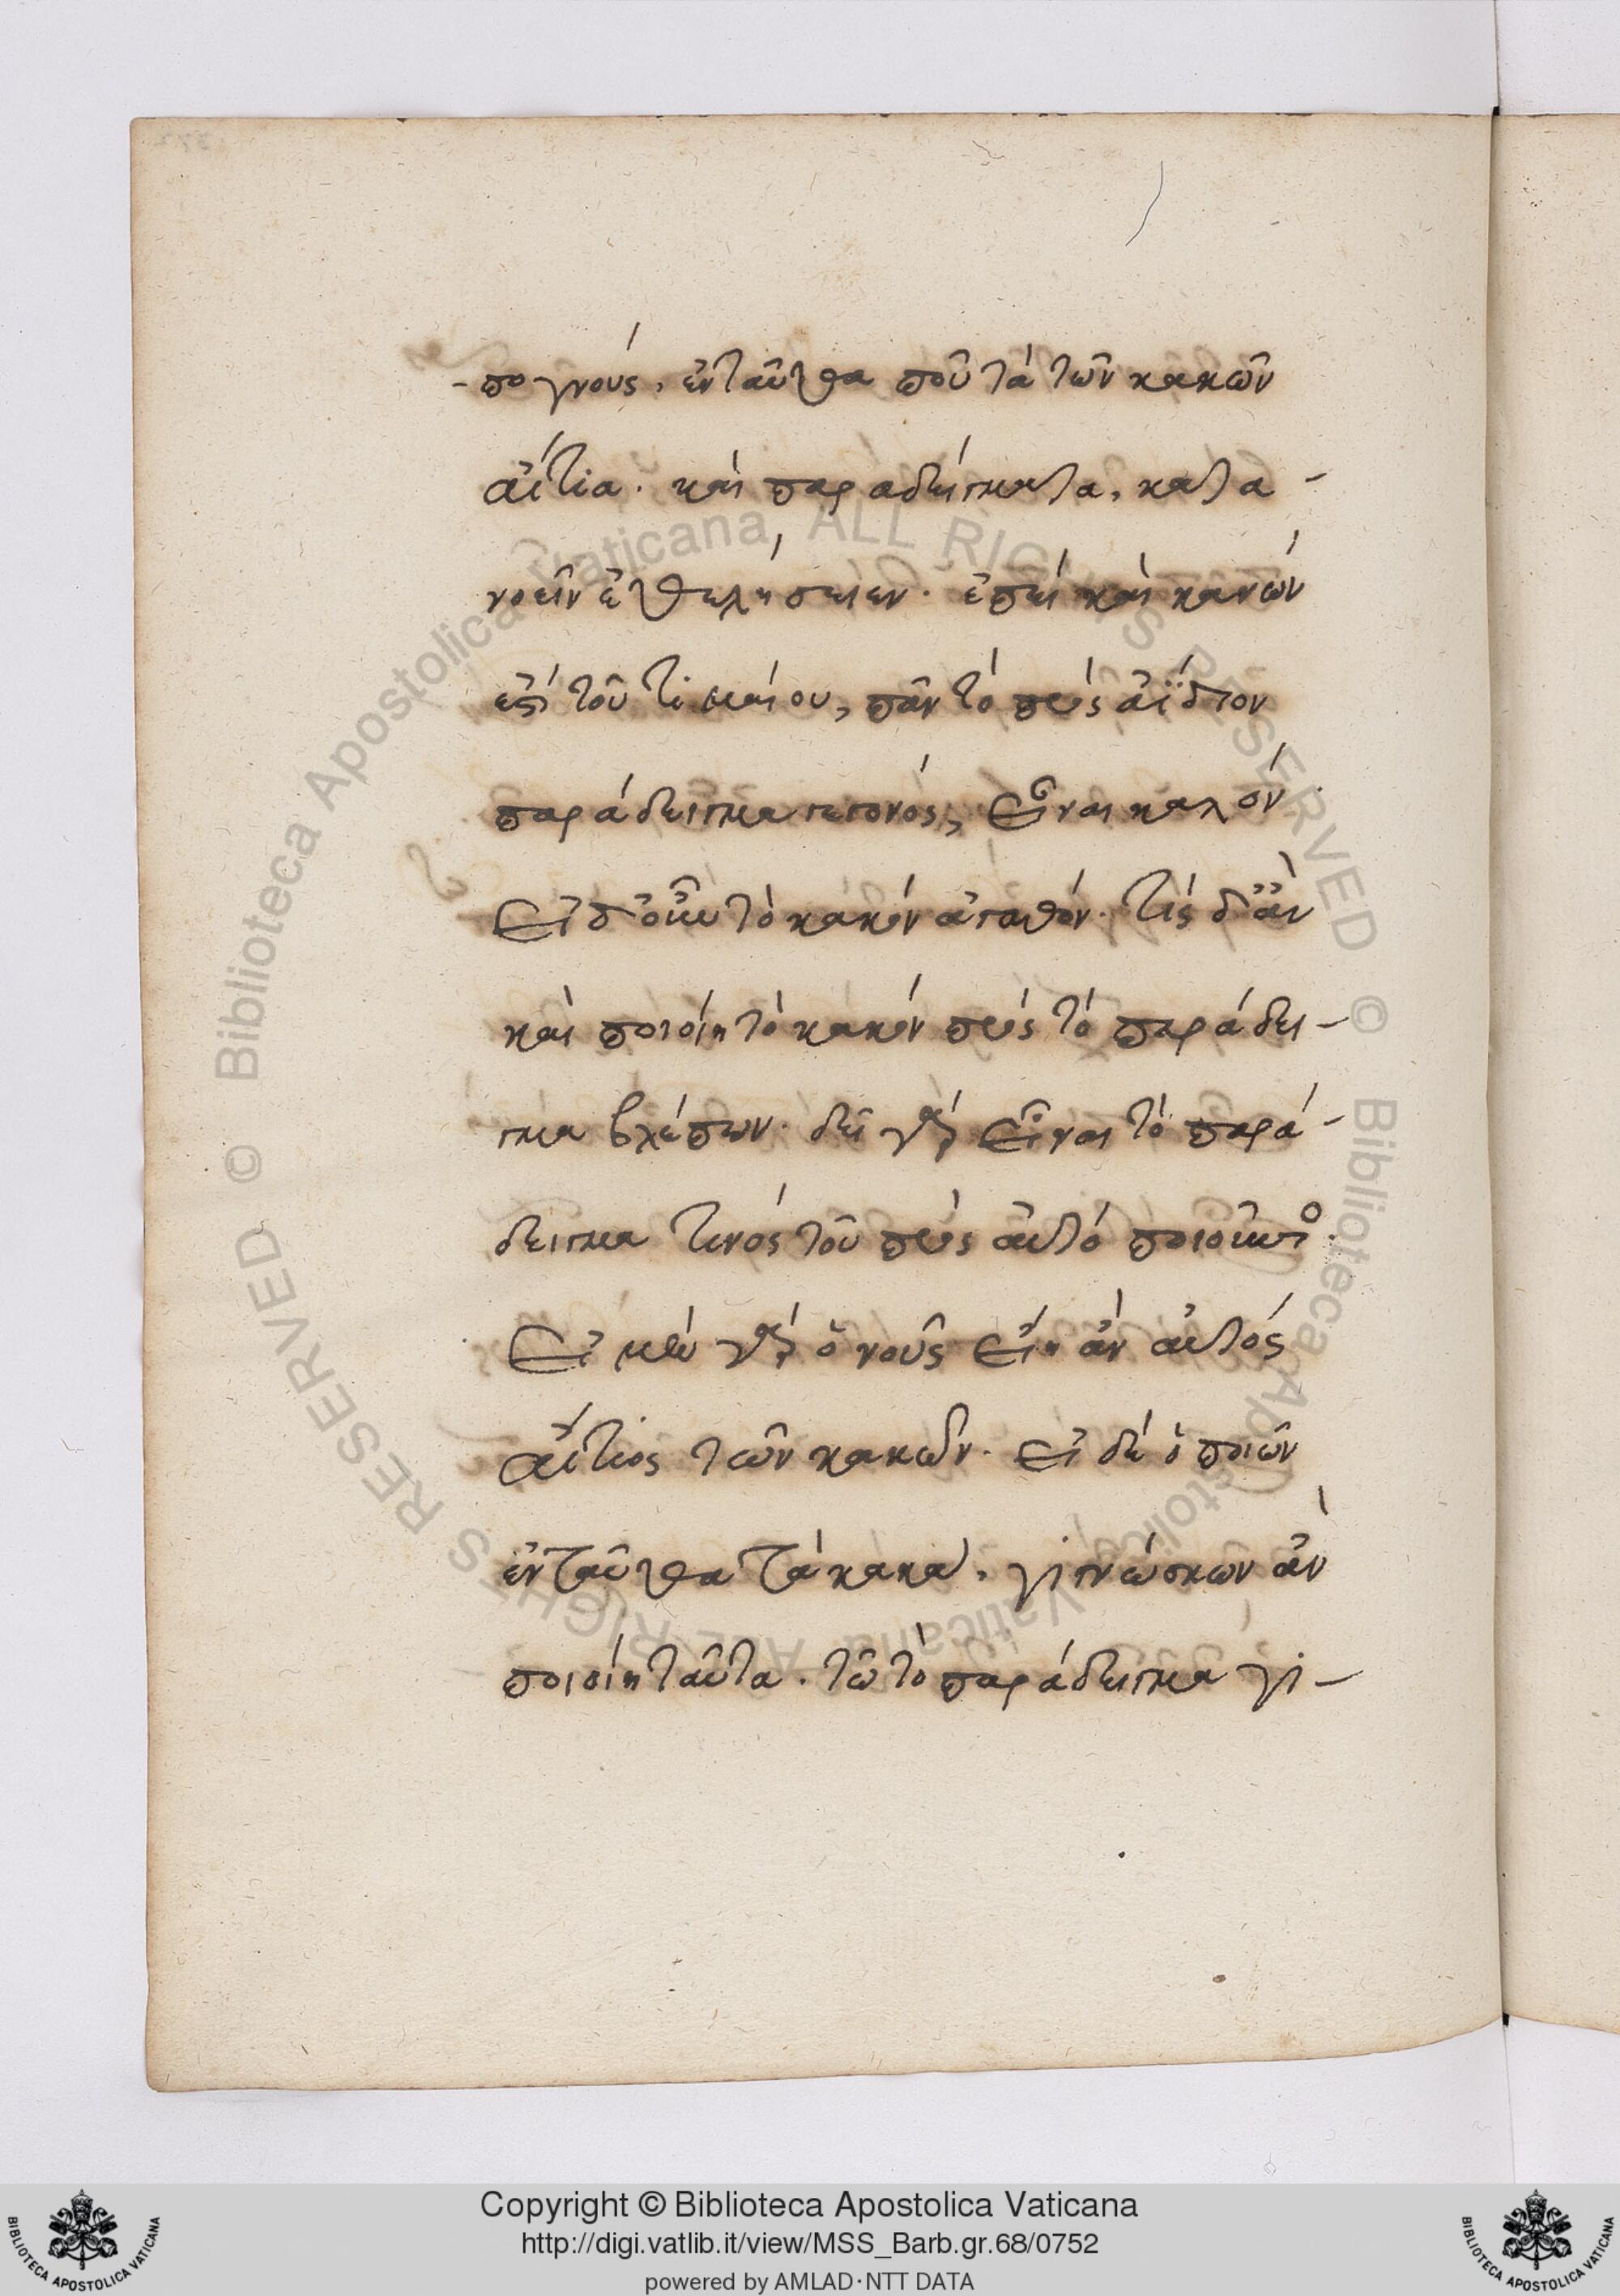 -πογνούς, ἐνταῦθα ποῦ τὰ τῶν κακῶν
αἴτια. καὶ παραδείγματα, κατα-
νοεῖν ἐθελήσειεν. ἐπεὶ καὶ κανὼν
ἐστὶ τοῦ τιμαίου, πᾶν τὸ πρὸς ἀΐδιον
παράδειγμα γεγονὸς, εἶναι καλὸν.
εἰ δ' οὖν τὸ κακὸν ἀγαθὸν. τίς δ' ἂν
καὶ ποιοίη τὸ κακὸν πρὸς τὸ παράδει-
γμα βλέπων. δεῖ γὰρ εἶναι τὸ παρά-
δειγμα τινὸς τοῦ πρὸς αὐτὸ ποιοῦντος.
εἰ μὲν γὰρ ὁ νοῦς εἴη ἂν αὐτὸς
αἴτιος τῶν κακῶν. εἰ δὲ ὁ ποιῶν
ἐνταῦθα τὰ κακὰ, γιγνώσκων ἂν
ποιοίη ταῦτα. τῶ τὸ παράδειγμα γι-
© Biblioteca Apostolica Vaticana ALL RIGHTS RESERVED © Biblioteca Apostolica Vaticana ALL RIGHTS RESERVED
Copyright © Biblioteca Apostolica Vaticana
http://digi.vatlib.it/view/MSS_Barb.gr.68/0752
powered by AMLAD·NTT DATA
BIBLIOTECA APOSTOLICA VATICANA
BIBLIOTECA APOSTOLICA VATICANA